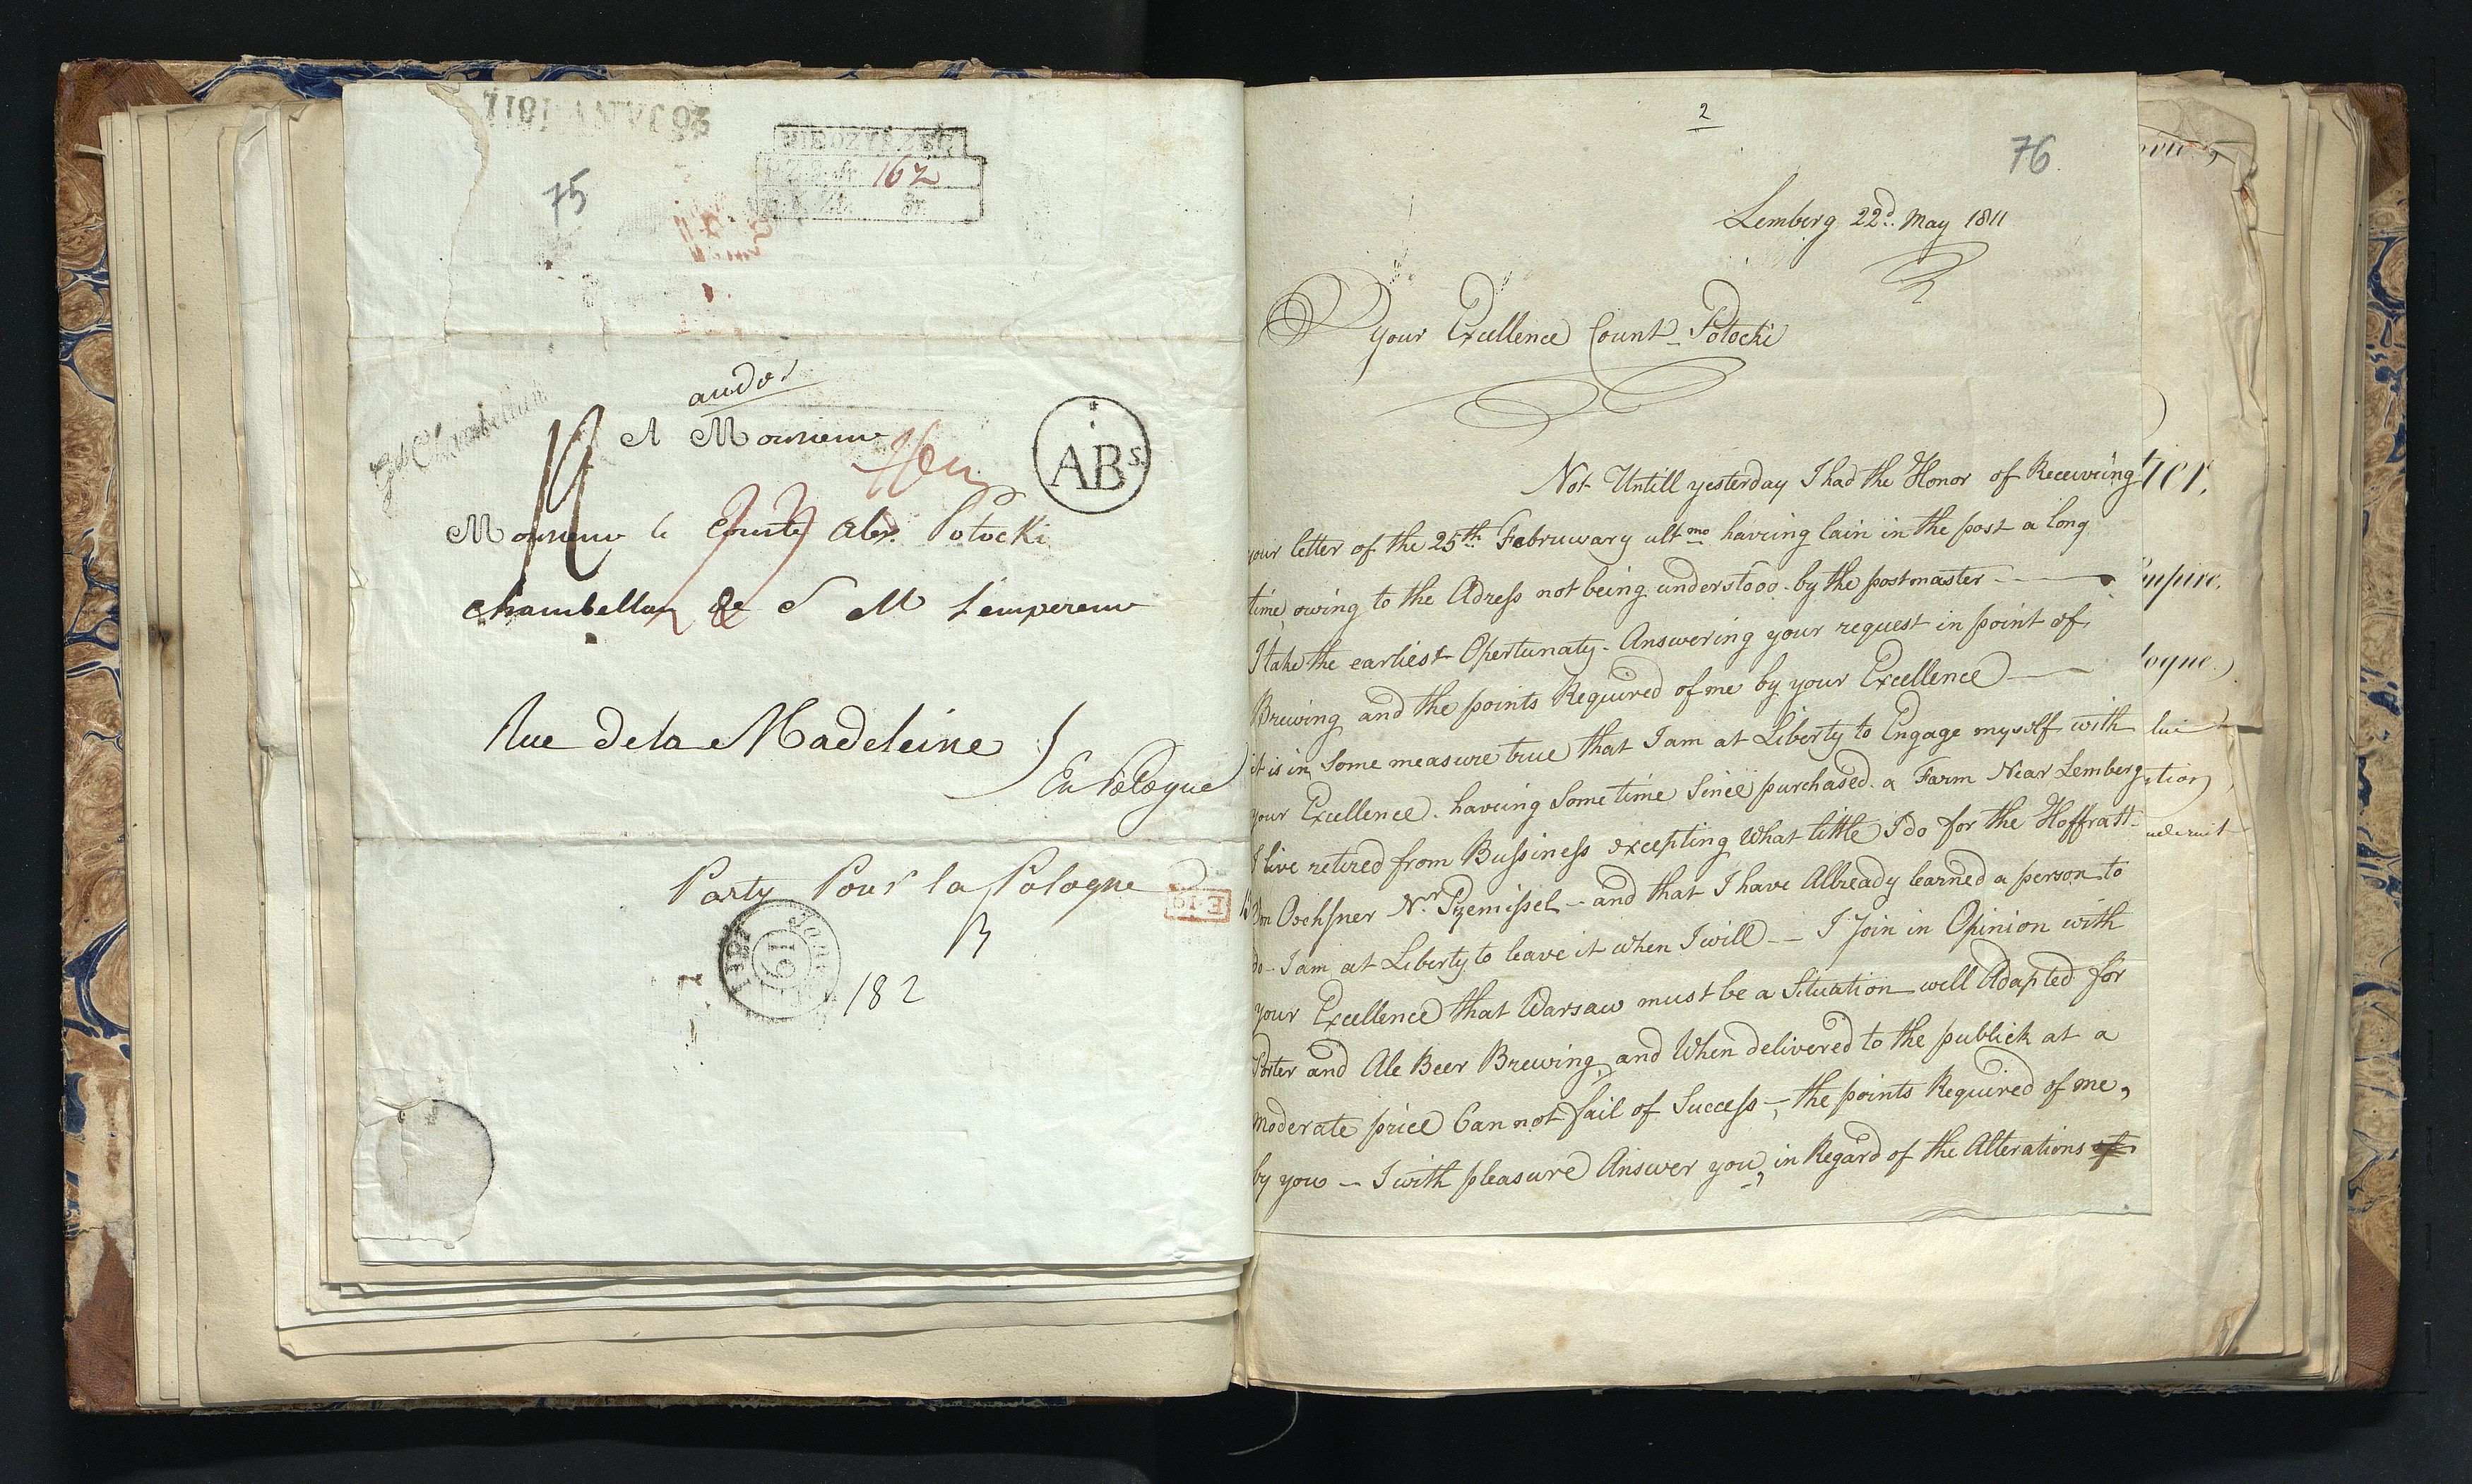 26 JANV. 1812
162
75
andos
A Monsieur
Gd Chambellan
ABs.
Monsieur le Comte Alex. Potocki
chambellan de S M L'empereur
Rue de la Madeleine
En Pologne
Party Pour la Pologne
19
182
2
76
Lemberg 22d. May 1811
your Excellence Count Potocki
Not Untill yesterday I had the Honor of Receiveing
your letter of the 25th Februwary ultmo haveing lain in the post a long
time, owing to the Adress not being understood by the postmaster
I take the earliest Opertunaty Answering your request in point of
Brewing and the points Required of me by your Excellence
it is in Some measure true that I am at Liberty to Engage myself with
your Excellence. haveing Some time Since purchased a Farm Near Lemberg
I live retired from Bussiness excepting What little I do for the Hoffratt
Von Oechsner Nr Pzemissel — and that I have Allready learned a person to
do — I am at Liberty to leave it when I will — I Join in Opinion with
your Excellence that Warsaw must be a Situation well Adapted for
Porter and Ale Beer Brewing, and When delivered to the publick at a
moderate price Can not fail of Success —, the points Required of me,
by you — I with pleasure Answer you, in Regard of the Alterations of